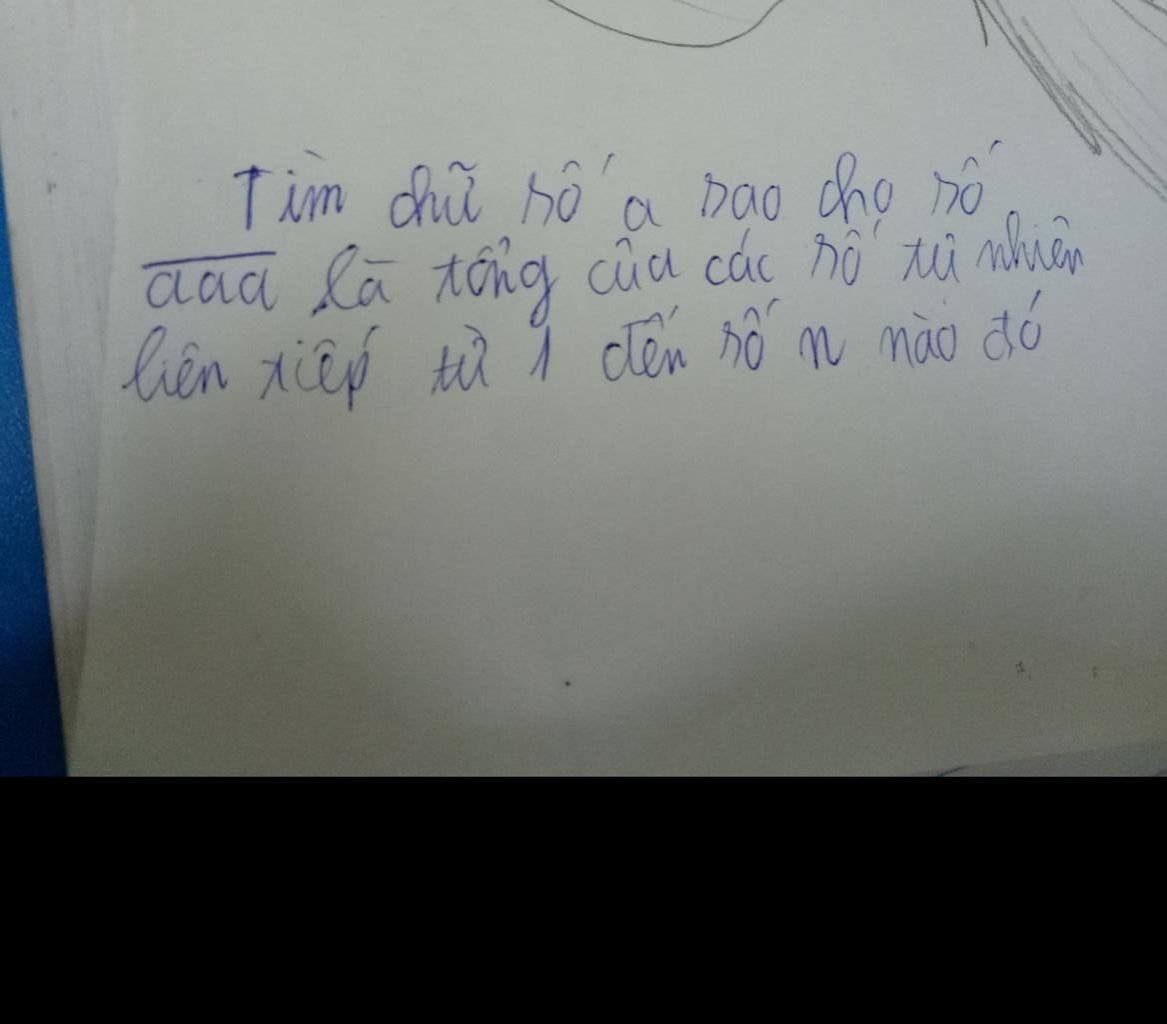 Tìm chữ số a sao cho số
aaa là tổng của các số tự nhiên
liên tiếp từ 1 đến số n nào đó